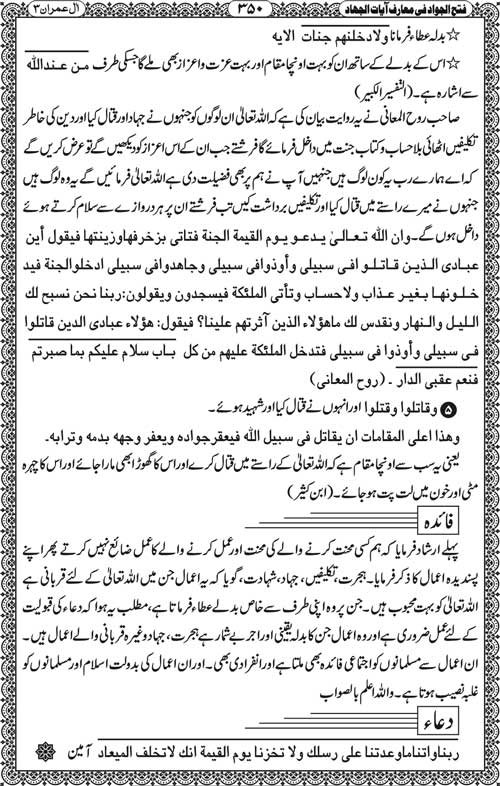 فتح الجواد فی معارف آیات الجهاد ۳۵۰ ال عمران ۳
☆ بدلہ عطاء فرمانا ولادخلنهم جنات الایه
☆ اس کے بدلے کے ساتھ ان کو بہت اونچا مقام اور بہت عزت واعزاز بھی ملے گا جسکی طرف من عندالله
سے اشارہ ہے۔ (التفسیر الکبیر)
صاحب روح المعانی نے یہ روایت بیان کی ہے کہ اللہ تعالیٰ ان لوگوں کو جنہوں نے جہاد اور قتال کیا اور دین کی خاطر
تکلیفیں اٹھائی بلاحساب وکتاب جنت میں داخل فرمائے گا فرشتے جب ان کے اس اعزاز کو دیکھیں گے تو عرض کریں گے
کہ اے ہمارے رب یہ کون لوگ ہیں جنہیں آپ نے ہم پر بھی فضیلت دی ہے اللہ تعالیٰ فرمائیں گے یہ وہ لوگ ہیں
جنہوں نے میرے راستے میں قتال کیا اور تکلیفیں برداشت کیں تب فرشتے ان پر ہر دروازے سے سلام کرتے ہوئے
داخل ہوں گے۔ وان الله تعالیٰ یدعو یوم القیمة الجنة فتاتی بزخرفها وزینتها فیقول أین
عبادی الذین قاتلوا فی سبیلی وأوذوا فی سبیلی وجاهدوا فی سبیلی ادخلوا الجنة فید
خلونها بغیر عذاب ولاحساب وتأتی الملئکة فیسجدون ویقولون: ربنا نحن نسبح لك
اللیل والنهار ونقدس لك ماهؤلاء الذین آثرتهم علینا؟ فیقول: هؤلاء عبادی الذین قاتلوا
فی سبیلی وأوذوا فی سبیلی فتدخل الملئکة علیهم من کل باب سلام علیکم بما صبرتم
فنعم عقبی الدار ۔ (روح المعانی)
۵ وقاتلوا وقتلوا اور انہوں نے قتال کیا اور شہید ہوئے۔
وهذا اعلی المقامات ان یقاتل فی سبیل الله فیعقر جواده ویعفر وجهه بدمه وترابه۔
یعنی یہ سب سے اونچا مقام ہے کہ اللہ تعالیٰ کے راستے میں قتال کرے اور اس کا گھوڑا بھی مارا جائے اور اس کا چہرہ
مٹی اور خون میں لت پت ہو جائے۔ (ابن کثیر)
فائدہ
پہلے ارشاد فرمایا کہ ہم کسی محنت کرنے والے کی محنت اور عمل کرنے والے کا عمل ضائع نہیں کرتے پھر اپنے
پسندیدہ اعمال کا ذکر فرمایا۔ ہجرت، تکلیفیں، جہاد، شہادت، گویا کہ یہ اعمال جن میں اللہ تعالیٰ کے لئے قربانی ہے
اللہ تعالیٰ کو بہت محبوب ہیں۔ جن پر وہ اپنی طرف سے خاص بدلے عطاء فرماتا ہے، مطلب یہ ہوا کہ دعاء کی قبولیت
کے لئے عمل ضروری ہے اور وہ اعمال جن کا بدلہ یقینی اور اجر بے شمار ہے ہجرت، جہاد وغیرہ قربانی والے اعمال ہیں۔
ان اعمال سے مسلمانوں کو اجتماعی فائدہ بھی ملتا ہے اور انفرادی بھی۔ اور ان اعمال کی بدولت اسلام اور مسلمانوں کو
غلبہ نصیب ہوتا ہے۔ واللہ اعلم بالصواب
دعاء
ربنا واتنا ماوعدتنا علی رسلك ولا تخزنا یوم القیمة انك لاتخلف المیعاد آمین